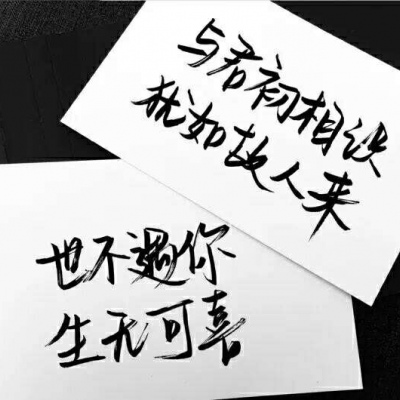 与君初相识
犹如故人来
世不遇你
生无可喜